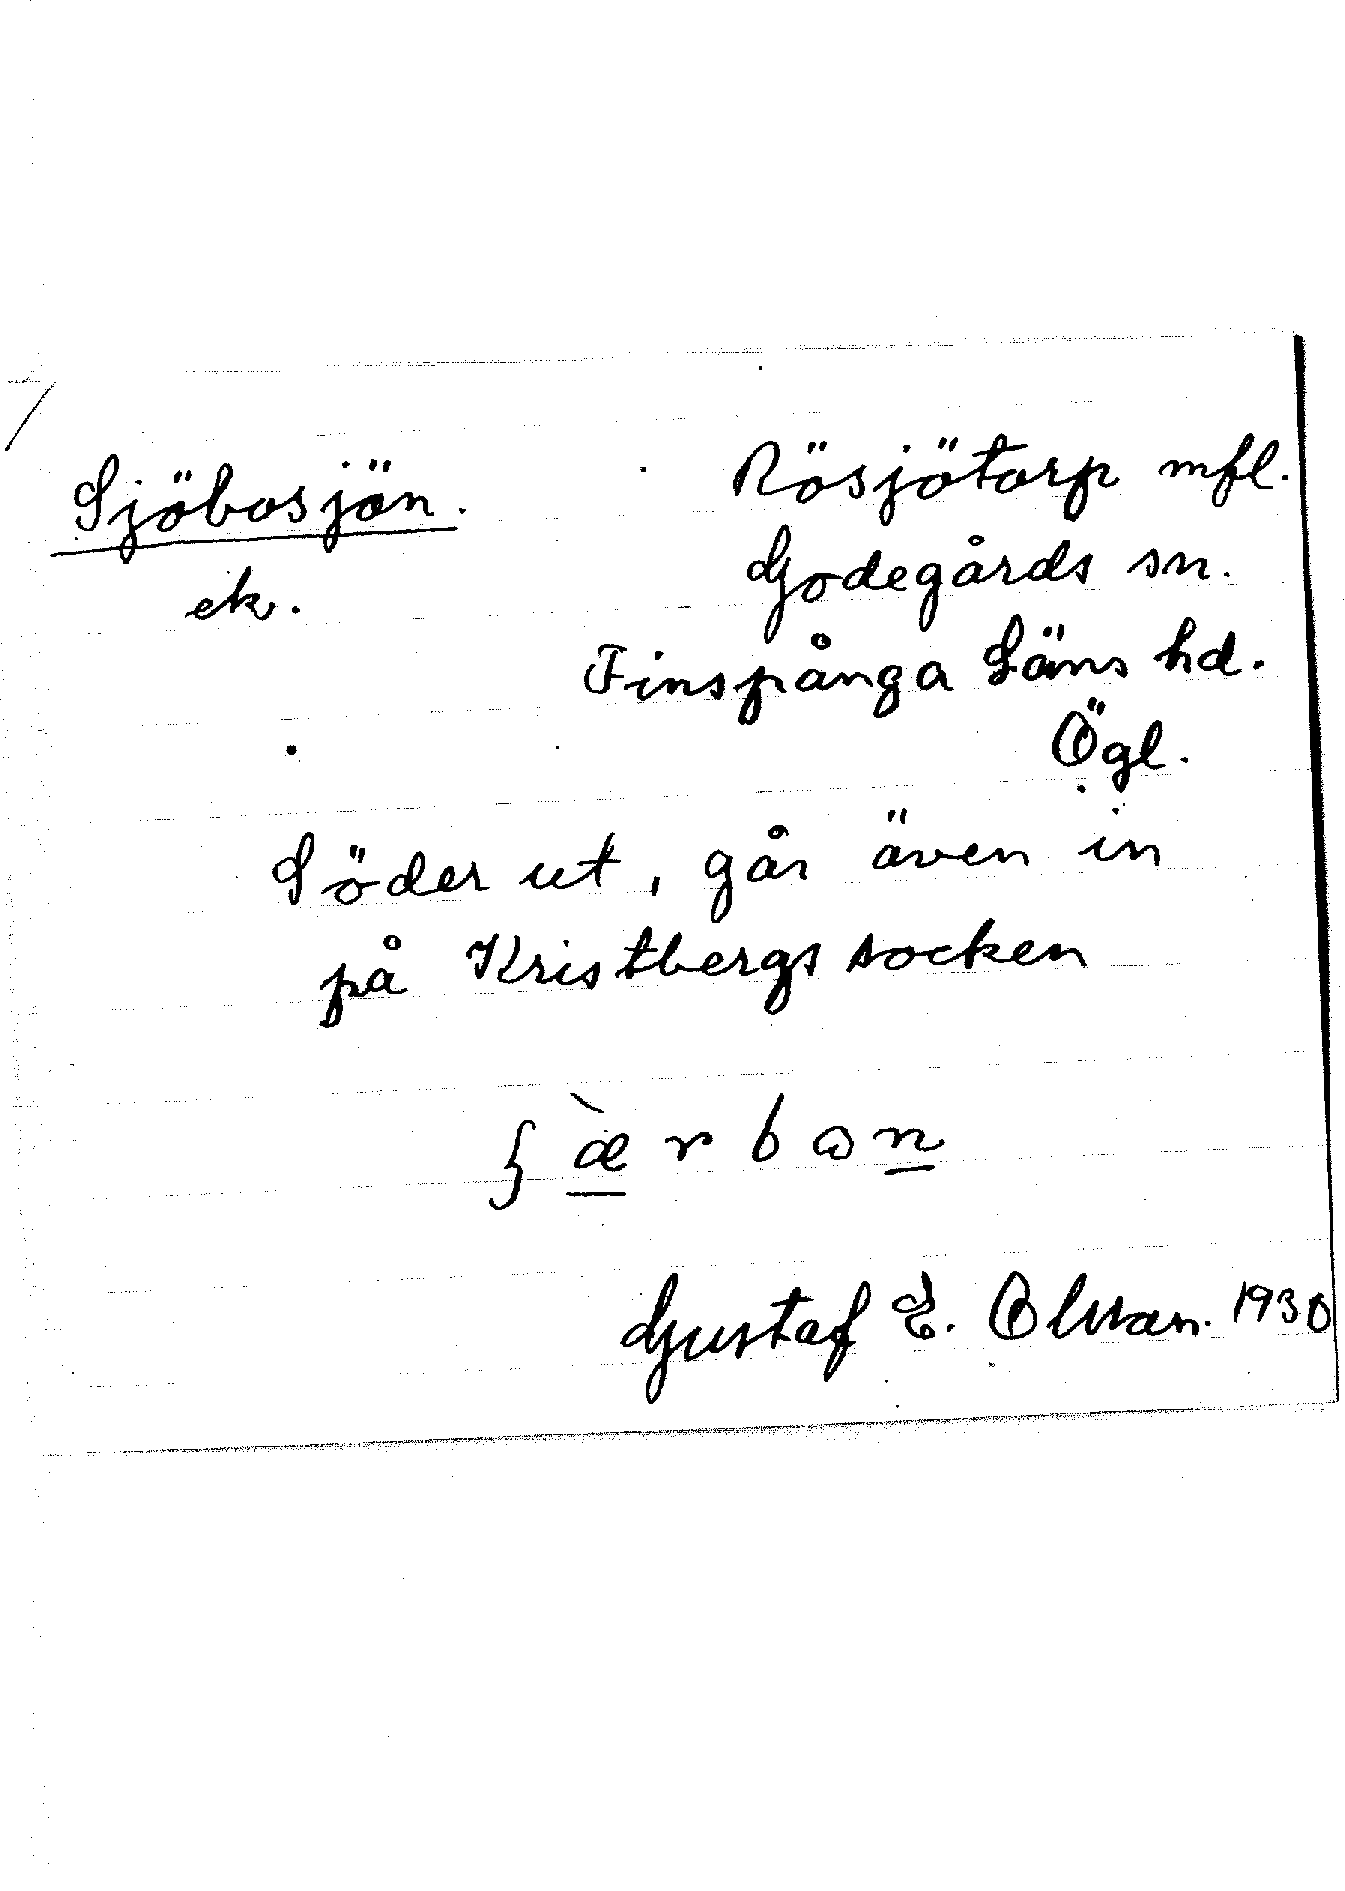 Sjöbosjön.
ek.
Rösjötorp mfl.
Godegårds sn.
Finspånga Läns hd.
Ögl.
Söder ut, går även in
på Kristbergs socken
Gustaf E. Olsson. 1930